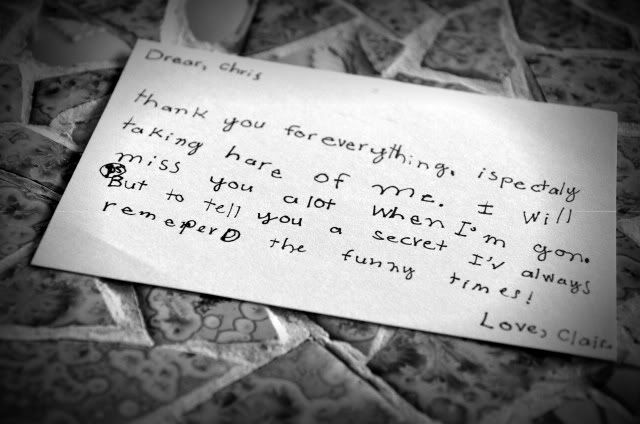 Drear, Chris
thank you for everything. ispectaly
taking hare of me. I will
miss you alot when I'm gon.
But to tell you a secret I'v always
remeperD the funny times!
Love, Clair.